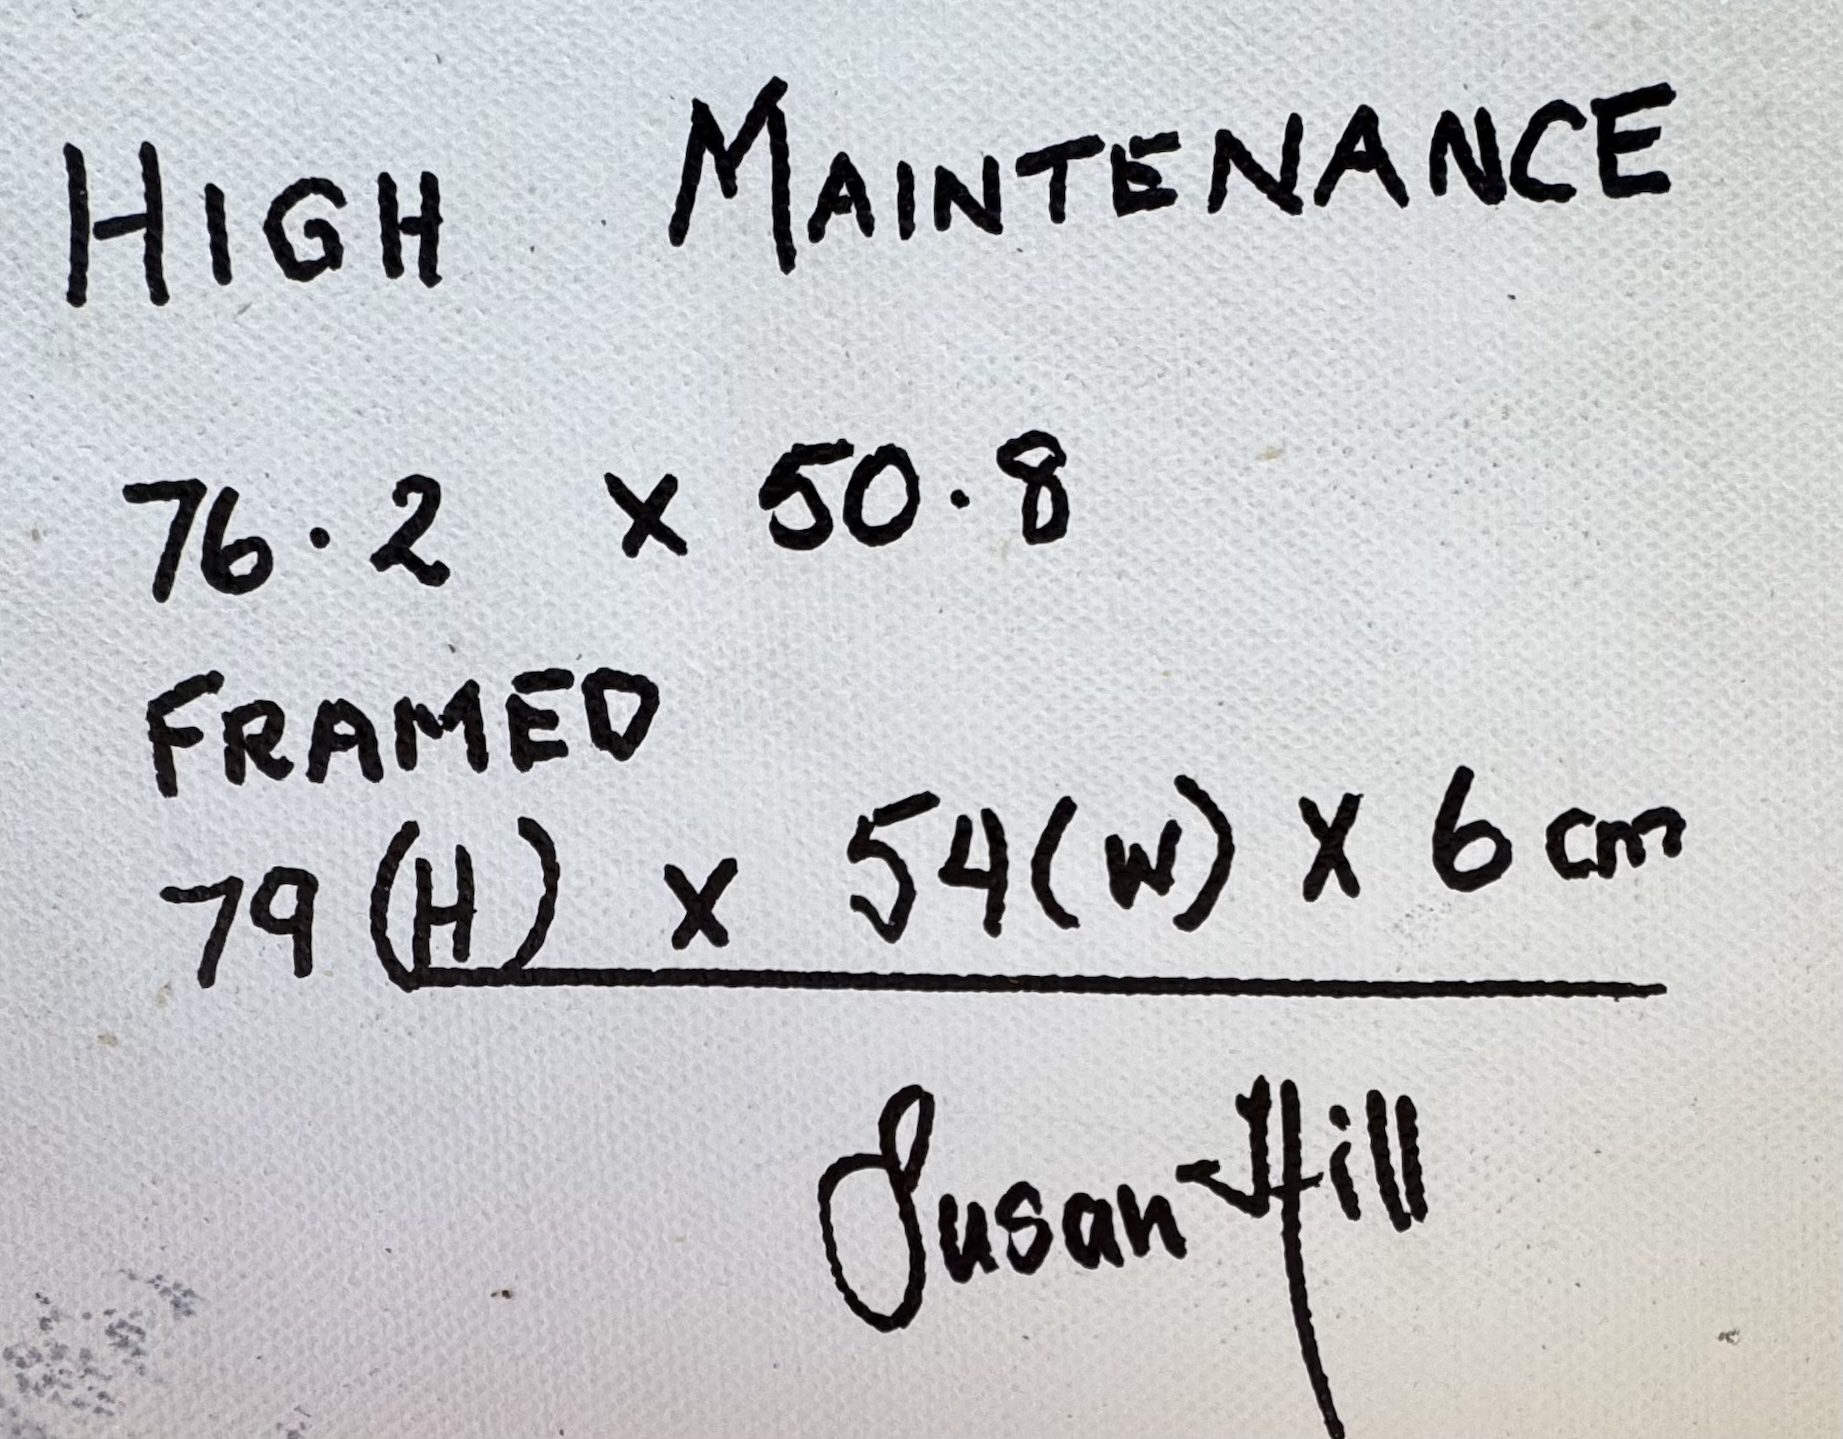 HIGH MAINTENANCE
76.2 x 50.8
FRAMED
79 (H) x 54 (W) x 6 cm
Susan Hill